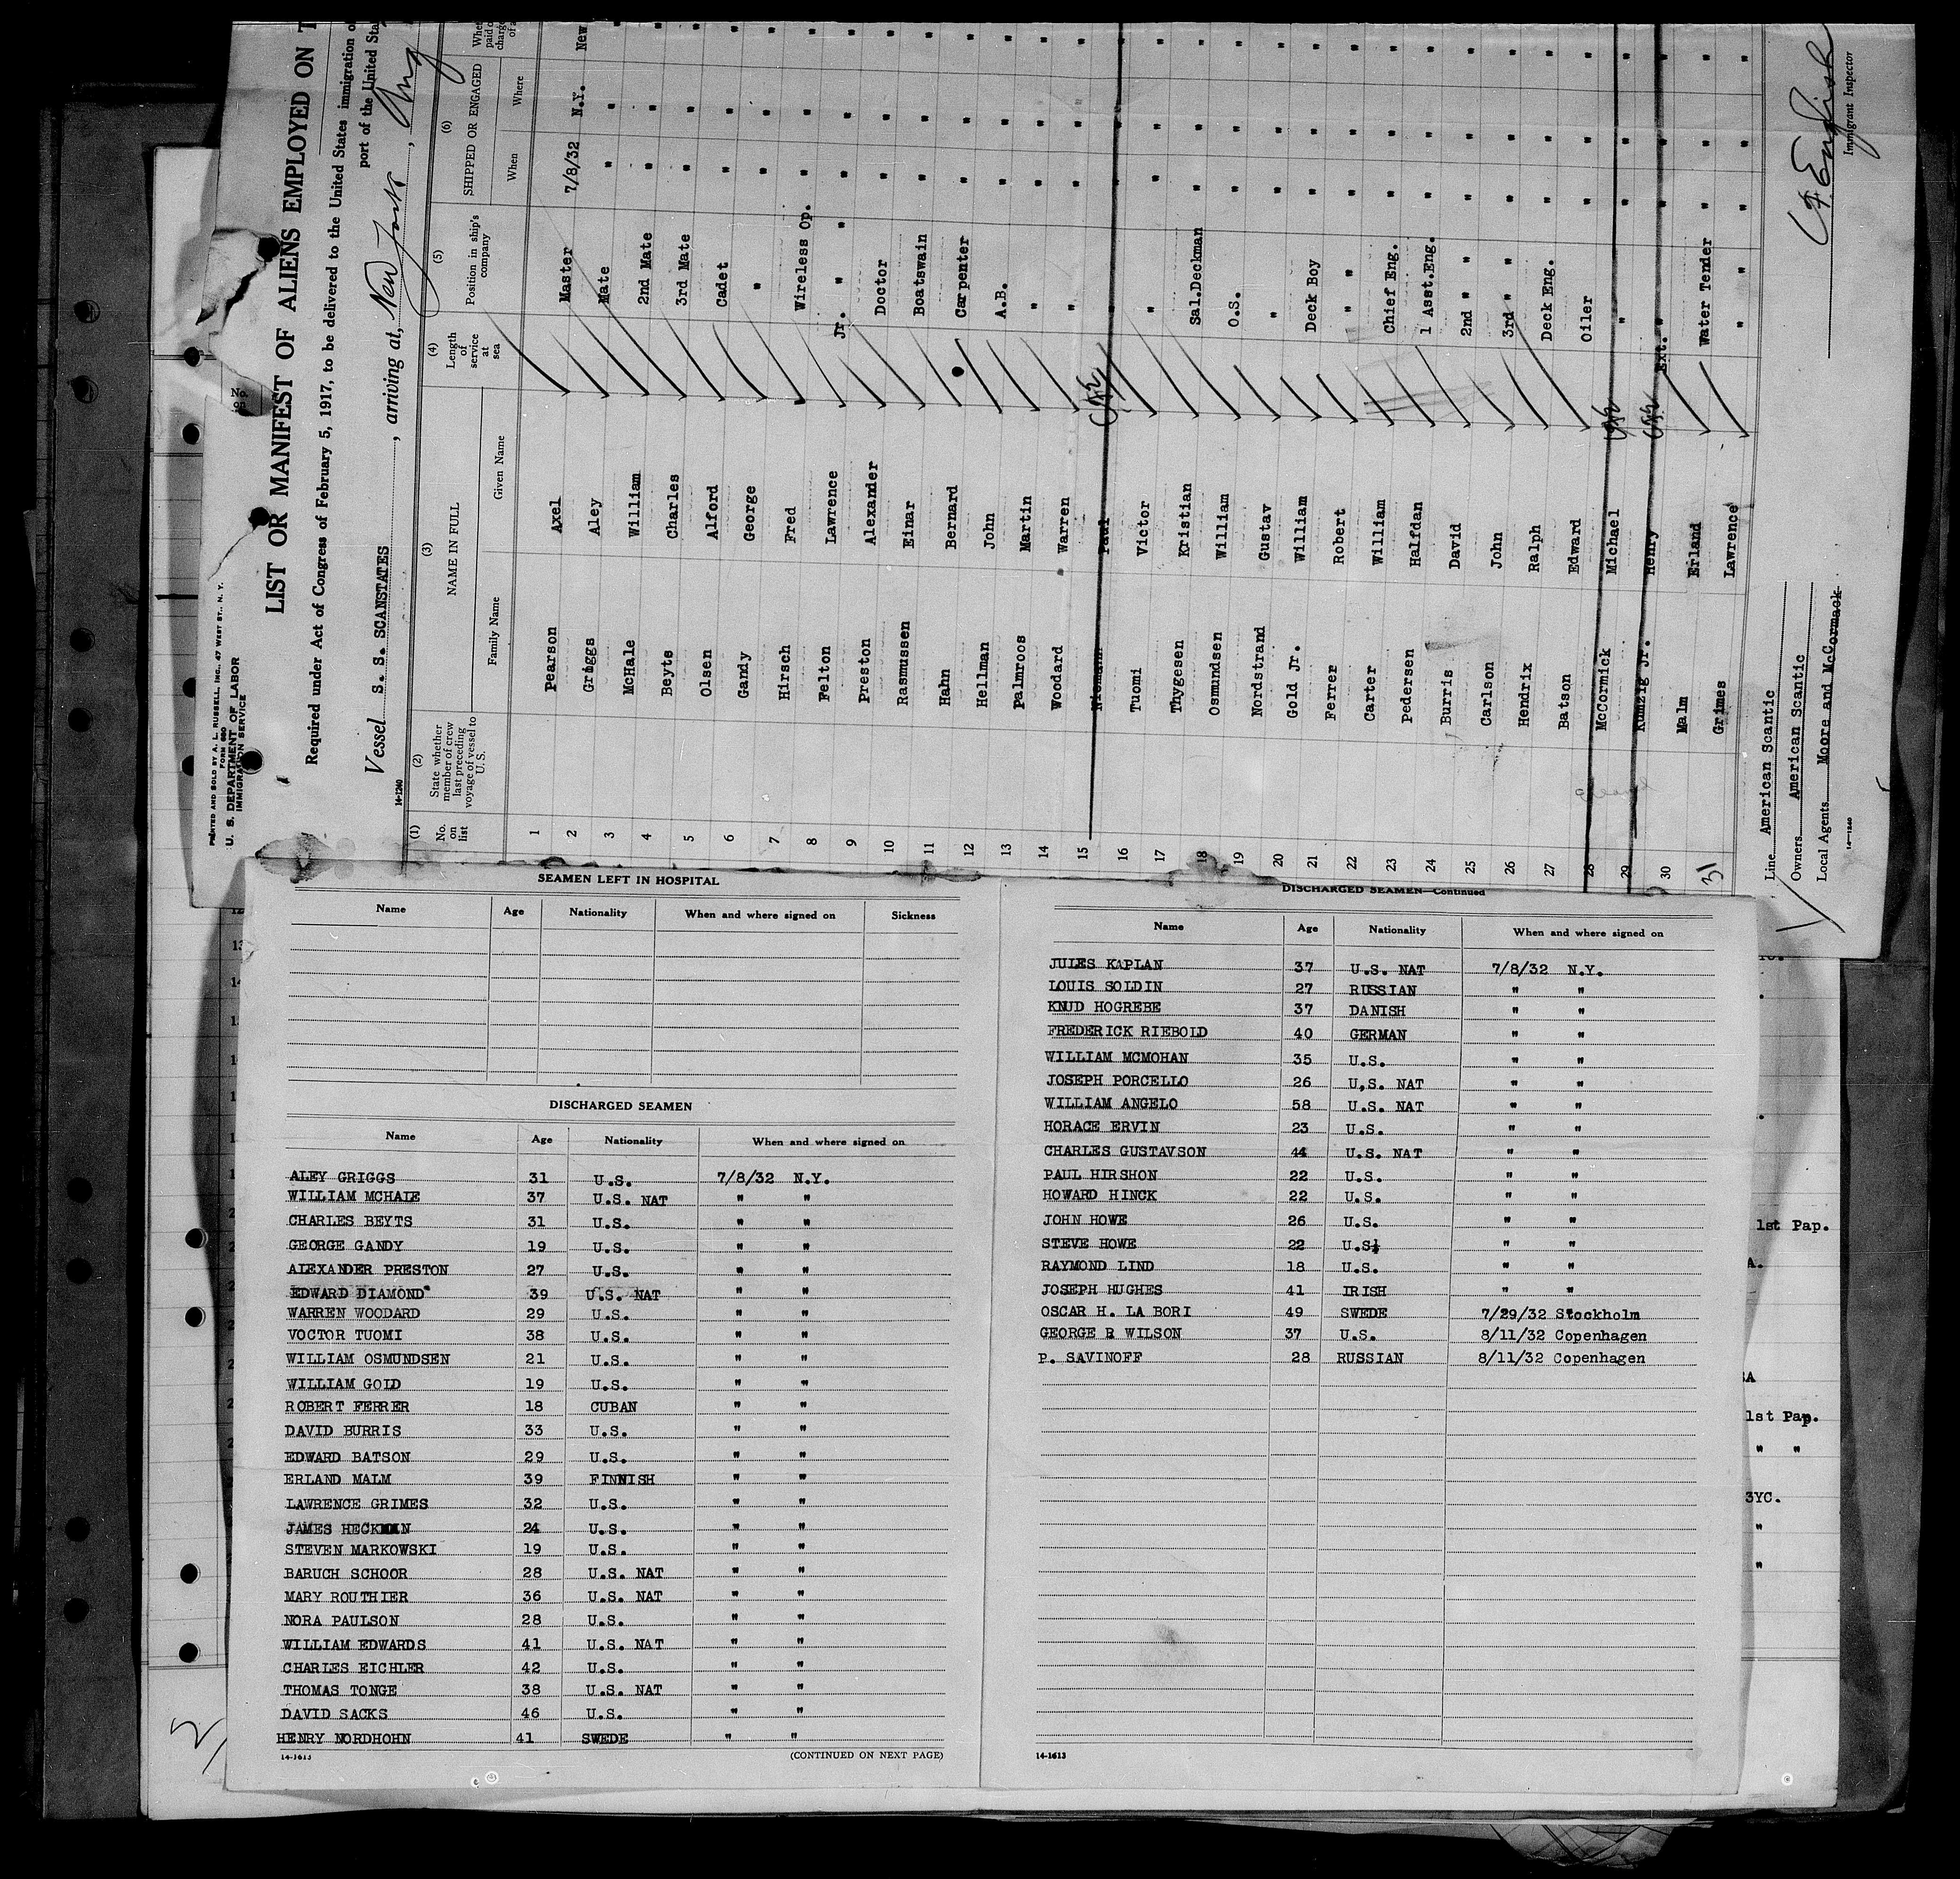 PRINTED AND SOLD BY A. L. RUSSELL, INC., 47 WEST ST., N. Y.
FORM 680
U. S. DEPARTMENT OF LABOR
IMMIGRATION SERVICE
No. on
LIST OR MANIFEST OF ALIENS EMPLOYED ON T
Required under Act of Congress of February 5, 1917, to be delivered to the United States immigration o
port of the United Sta
Vessel S. S. SCANSTATES, arriving at, New York, Aug
14-1240
(1) No. on list (2) State whether member of crew last preceding voyage of vessel to U. S. (3) NAME IN FULL Family Name Given Name (4) Length of service at sea (5) Position in ship's company (6) SHIPPED OR ENGAGED When Where
1 Pearson Axel Master 7/8/32 N.Y. New
2 Griggs Aley Mate " " "
3 McHale William 2nd Mate " " "
4 Beyts Charles 3rd Mate " " "
5 Olsen Alford Cadet " " "
6 Gandy George " " " "
7 Hirsch Fred Wireless Op. " " "
8 Felton Lawrence Jr. " " " " "
9 Preston Alexander Doctor " " "
10 Rasmussen Einar Boatswain " " "
11 Hahn Bernard Carpenter " " "
12 Hellman John A.B. " " "
13 Palmroos Martin " " " "
14 Woodard Warren " " " "
15 Niemann Paul " " " "
16 Tuomi Victor " " " "
17 Thygesen Kristian Sal.Deckman " " "
18 Osmundsen William O.S. " " "
19 Nordstrand Gustav " " " "
20 Gold Jr. William Deck Boy " " "
21 Ferrer Robert " " " " "
22 Carter William Chief Eng. " " "
23 Pedersen Halfdan 1 Asst.Eng. " " "
24 Burris David 2nd " " " "
25 Carlson John 3rd " " " "
26 Hendrix Ralph Deck Eng. " " "
27 Batson Edward Oiler " " "
28 McCormick Michael " " " "
29 Kumzig Jr. Henry Ext. " " " "
30 Malm Erland Water Tender " " "
31 Grimes Lawrence " " " " "
Line American Scantic
Owners American Scantic
Local Agents Moore and McCormack
14-1240
Immigrant Inspector
SEAMEN LEFT IN HOSPITAL
Name Age Nationality When and where signed on Sickness
DISCHARGED SEAMEN
Name Age Nationality When and where signed on
ALEY GRIGGS 31 U.S. 7/8/32 N.Y.
WILLIAM MCHALE 37 U.S. NAT " "
CHARLES BEYTS 31 U.S. " "
GEORGE GANDY 19 U.S. " "
ALEXANDER PRESTON 27 U.S. " "
EDWARD DIAMOND 39 U.S. NAT " "
WARREN WOODARD 29 U.S. " "
VOCTOR TUOMI 38 U.S. " "
WILLIAM OSMUNDSEN 21 U.S. " "
WILLIAM GOLD 19 U.S. " "
ROBERT FERRER 18 CUBAN " "
DAVID BURRIS 33 U.S. " "
EDWARD BATSON 29 U.S. " "
ERLAND MALM 39 FINNISH " "
LAWRENCE GRIMES 32 U.S. " "
JAMES HECKMAN 24 U.S. " "
STEVEN MARKOWSKI 19 U.S. " "
BARUCH SCHOOR 28 U.S. NAT " "
MARY ROUTHIER 36 U.S. NAT " "
NORA PAULSON 28 U.S. " "
WILLIAM EDWARDS 41 U.S. NAT " "
CHARLES EICHLER 42 U.S. " "
THOMAS TONGE 38 U.S. NAT " "
DAVID SACKS 46 U.S. " "
HENRY NORDHOHN 41 SWEDE " "
14-1613 (CONTINUED ON NEXT PAGE)
DISCHARGED SEAMEN—Continued
Name Age Nationality When and where signed on
JULES KAPLAN 37 U.S. NAT 7/8/32 N.Y.
LOUIS SOLDIN 27 RUSSIAN " "
KNUD HOGREBE 37 DANISH " "
FREDERICK RIEBOLD 40 GERMAN " "
WILLIAM MCMOHAN 35 U.S. " "
JOSEPH PORCELLO 26 U.S. NAT " "
WILLIAM ANGELO 58 U.S. NAT " "
HORACE ERVIN 23 U.S. " "
CHARLES GUSTAVSON 44 U.S. NAT " "
PAUL HIRSHON 22 U.S. " "
HOWARD HINCK 22 U.S. " "
JOHN HOWE 26 U.S. " "
STEVE HOWE 22 U.S. " "
RAYMOND LIND 18 U.S. " "
JOSEPH HUGHES 41 IRISH " "
OSCAR H. LA BORI 49 SWEDE 7/29/32 Stockholm
GEORGE R WILSON 37 U.S. 8/11/32 Copenhagen
P. SAVINOFF 28 RUSSIAN 8/11/32 Copenhagen
14-1613
1st Pap.
1st Pap.
" "
3YC.
"
"